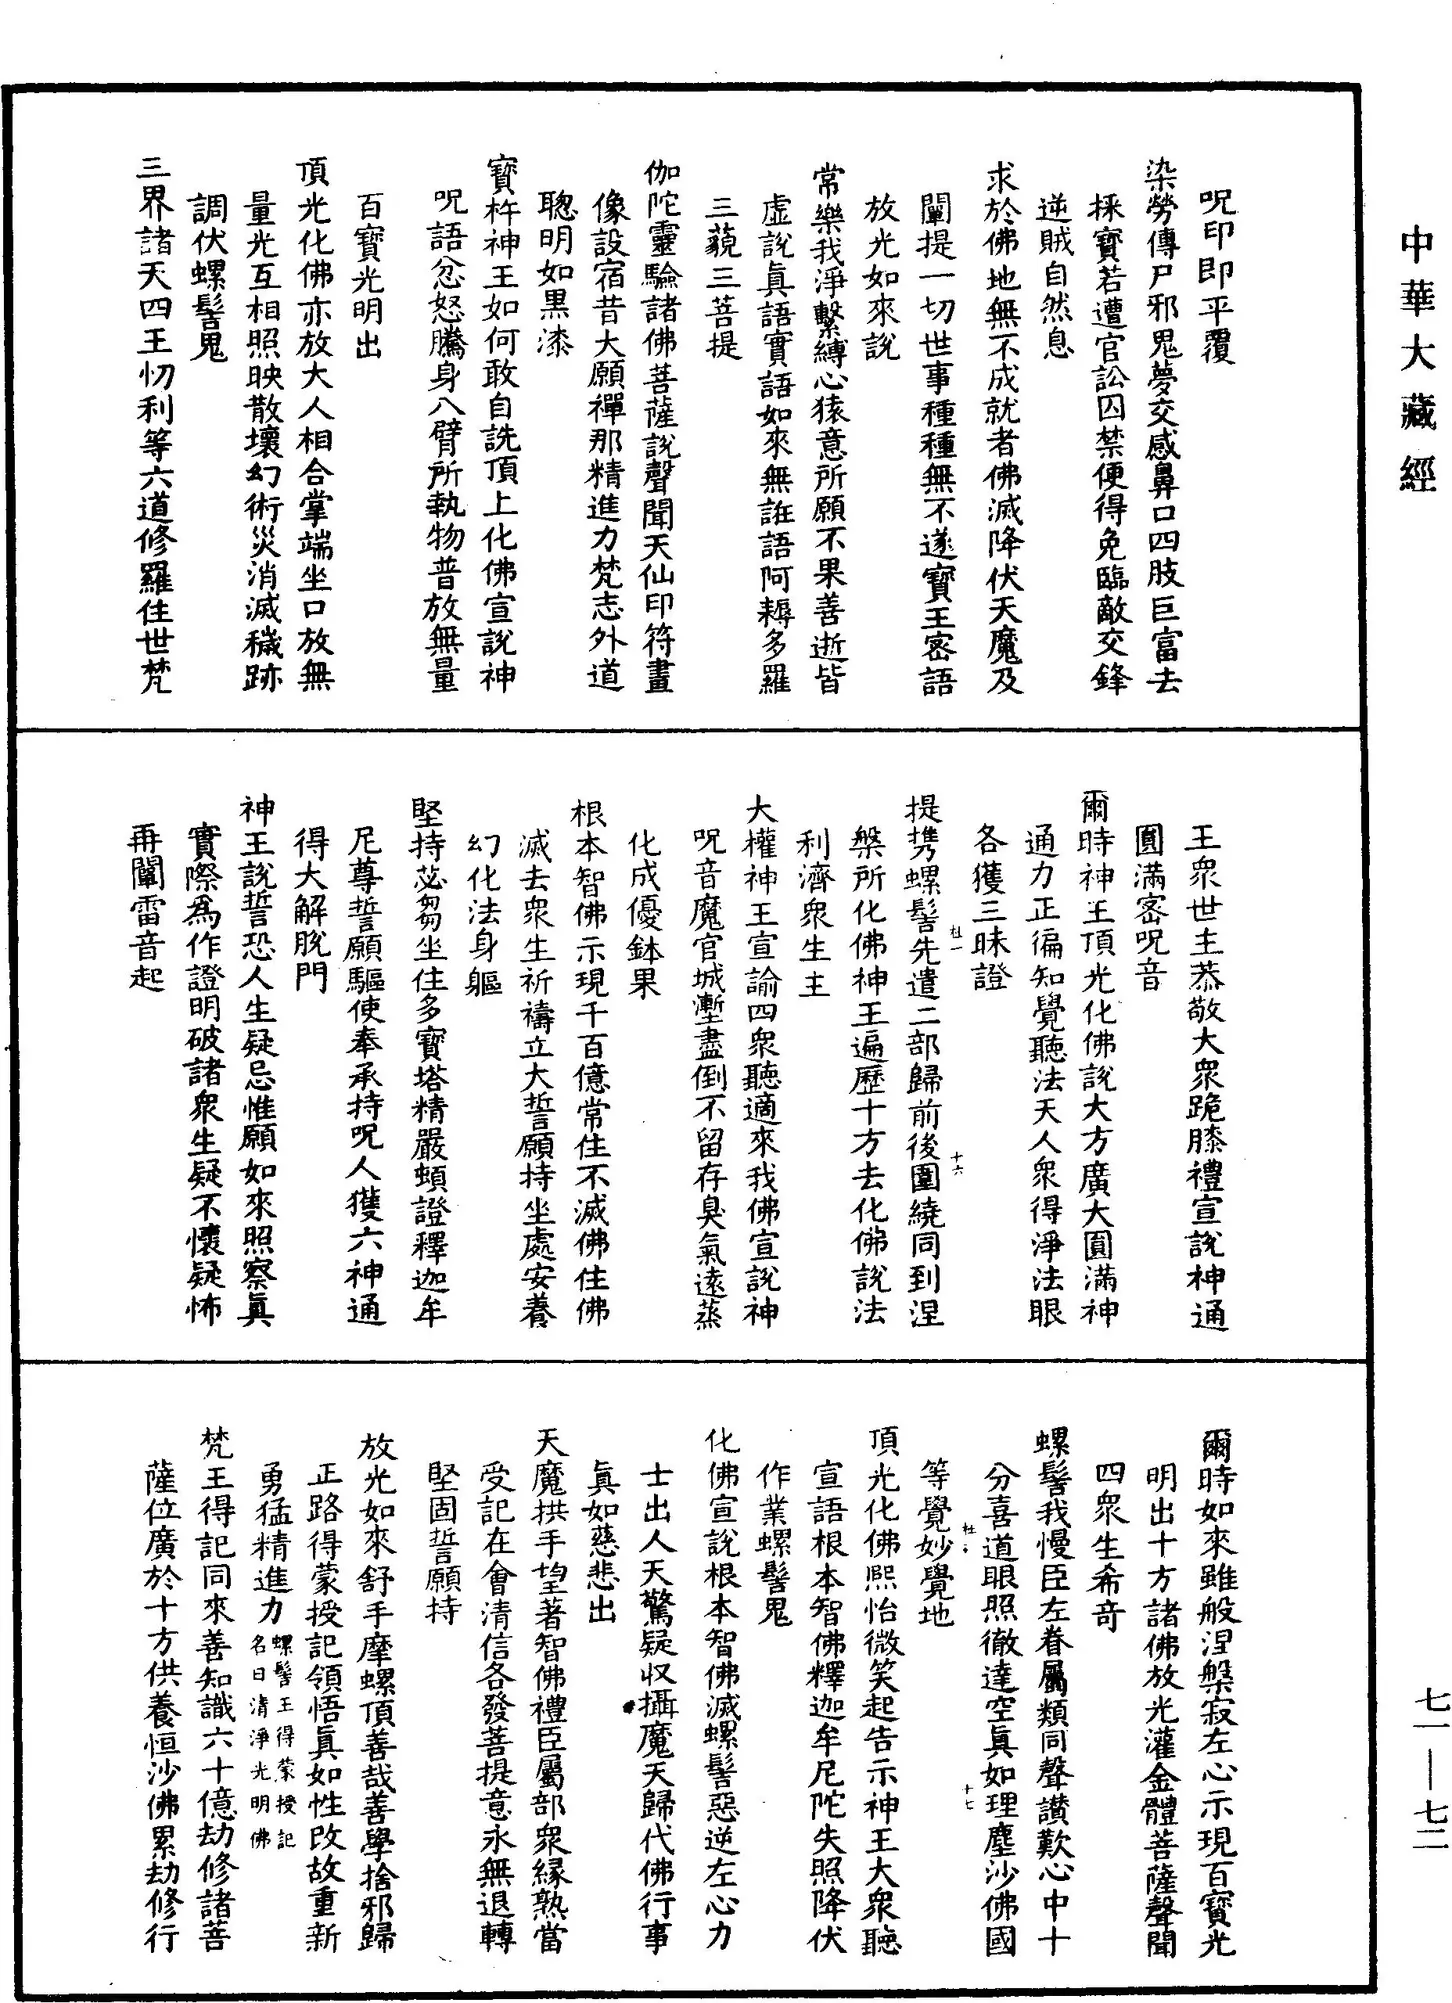 中華大藏經
呪印即平覆
染勞傳尸邪鬼夢交感鼻口四肢巨富去
採寶若遭官訟囚禁便得免臨敵交鋒
逆賊自然息
求於佛地無不成就者佛滅降伏天魔及
闡提一切世事種種無不遂寶王密語
放光如來說
常樂我淨繫縛心猿意所願不果善逝皆
虛說真語實語如來無誑語阿耨多羅
三藐三菩提
伽陀靈驗諸佛菩薩說聲聞天仙印符畫
像設宿昔大願禪那精進力梵志外道
聰明如黑漆
寶杵神王如何敢自詵頂上化佛宣說神
呪語忿怒騰身八臂所執物普放無量
百寶光明出
頂光化佛亦放大人相合掌端坐口放無
量光互相照映散壞幻術災消滅穢跡
調伏螺髻鬼
三界諸天四王忉利等六道修羅住世梵
王眾世主恭敬大眾跪膝禮宣說神通
圓滿密呪音
爾時神王頂光化佛說大方廣大圓滿神
通力正徧知覺聽法天人眾得淨法眼
各獲三昧證
提携螺髻先遣二部歸前後圍繞同到涅
槃所化佛神王遍歷十方去化佛說法
利濟眾生主
大權神王宣諭四眾聽適來我佛宣說神
呪音魔官城塹盡倒不留存臭氣遠蒸
化成優鉢果
根本智佛示現千百億常住不滅佛住佛
滅去眾生祈禱立大誓願持坐處安養
幻化法身軀
堅持苾芻坐住多寶塔精嚴頓證釋迦牟
尼尊誓願驅使奉承持呪人獲六神通
得大解脫門
神王說誓恐人生疑忌惟願如來照察真
實際為作證明破諸眾生疑不懷疑怖
再闡雷音起
爾時如來雖般涅槃寂左心示現百寶光
明出十方諸佛放光灌金體菩薩聲聞
四眾生希奇
螺髻我慢臣左眷屬類同聲讃歎心中十
分喜道眼照徹達空真如理塵沙佛國
等覺妙覺地
頂光化佛熙怡微笑起告示神王大眾聽
宣語根本智佛釋迦牟尼陀失照降伏
作業螺髻鬼
化佛宣說根本智佛滅螺髻惡逆左心力
士出人天驚疑収攝魔天歸代佛行事
真如慈悲出
天魔拱手望著智佛禮臣屬部眾緣熟當
受記在會清信各發菩提意永無退轉
堅固誓願持
放光如來舒手摩螺頂善哉善學捨邪歸
正路得蒙授記領悟真如性改故重新
勇猛精進力螺髻王得蒙授記名曰清淨光明佛
梵王得記同來善知識六十億劫修諸菩
薩位廣於十方供養恒沙佛累劫修行
十六
十七
七一—七二